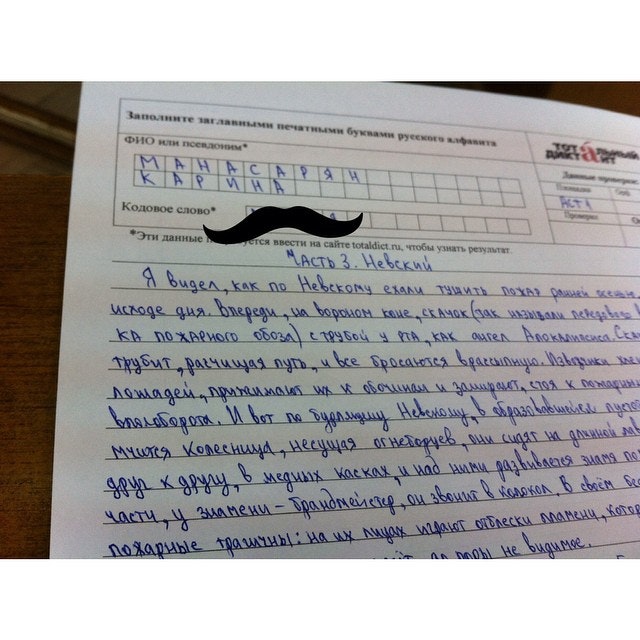 Заполните заглавными печатными буквами русского алфавита
ФИО или псевдоним*
МАНАСАРЯН
КАРИНА
Кодовое слово*
*Эти данные ется ввести на сайте totaldict.ru, чтобы узнать результат.
ТОТАЛЬНЫЙ
ДИКТАНТ
Данные проверки
Площадка
Проверил
Часть 3. Невский
Я видел, как по Невскому ехали тушить пожар ранней осенью
исходе дня. Впереди, на вороном коне, скачок (так называли передового
ка пожарного обоза) с трубой у рта, как ангел Апокалипсиса.
трубит, расчищая путь, и все бросаются врассыпную. Извозчики
лошадей, прижимают их к обочинам и замирают, стоя к
вполоборота. И вот по бурлящему Невскому, в образовавшейся
мчится колесница, несущая огнеборцев, они сидят на длинной
друг к другу, в медных касках, и над ними развивается знамя
части, у знамени - брандмейстер, он звонит в колокол. В своём
пожарные трагичны: на их лицах играют отблески пламени,
поры не видимое.